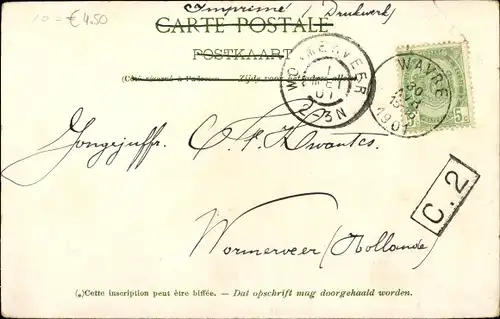 10 = € 4.50
Imprimé (Drukwerk)
CARTE POSTALE
POSTKAART
(Côté réservé à l'adresse
Zijde voor
WORMERVEER
1 MEI 01
2-3N
WAVRE
30
1901
5c
Jongejuffr. C. F. Kwantes.
C.2
Wormerveer (Hollande)
(*)Cette inscription peut être biffée. — Dat opschrift mag doorgehaald worden.